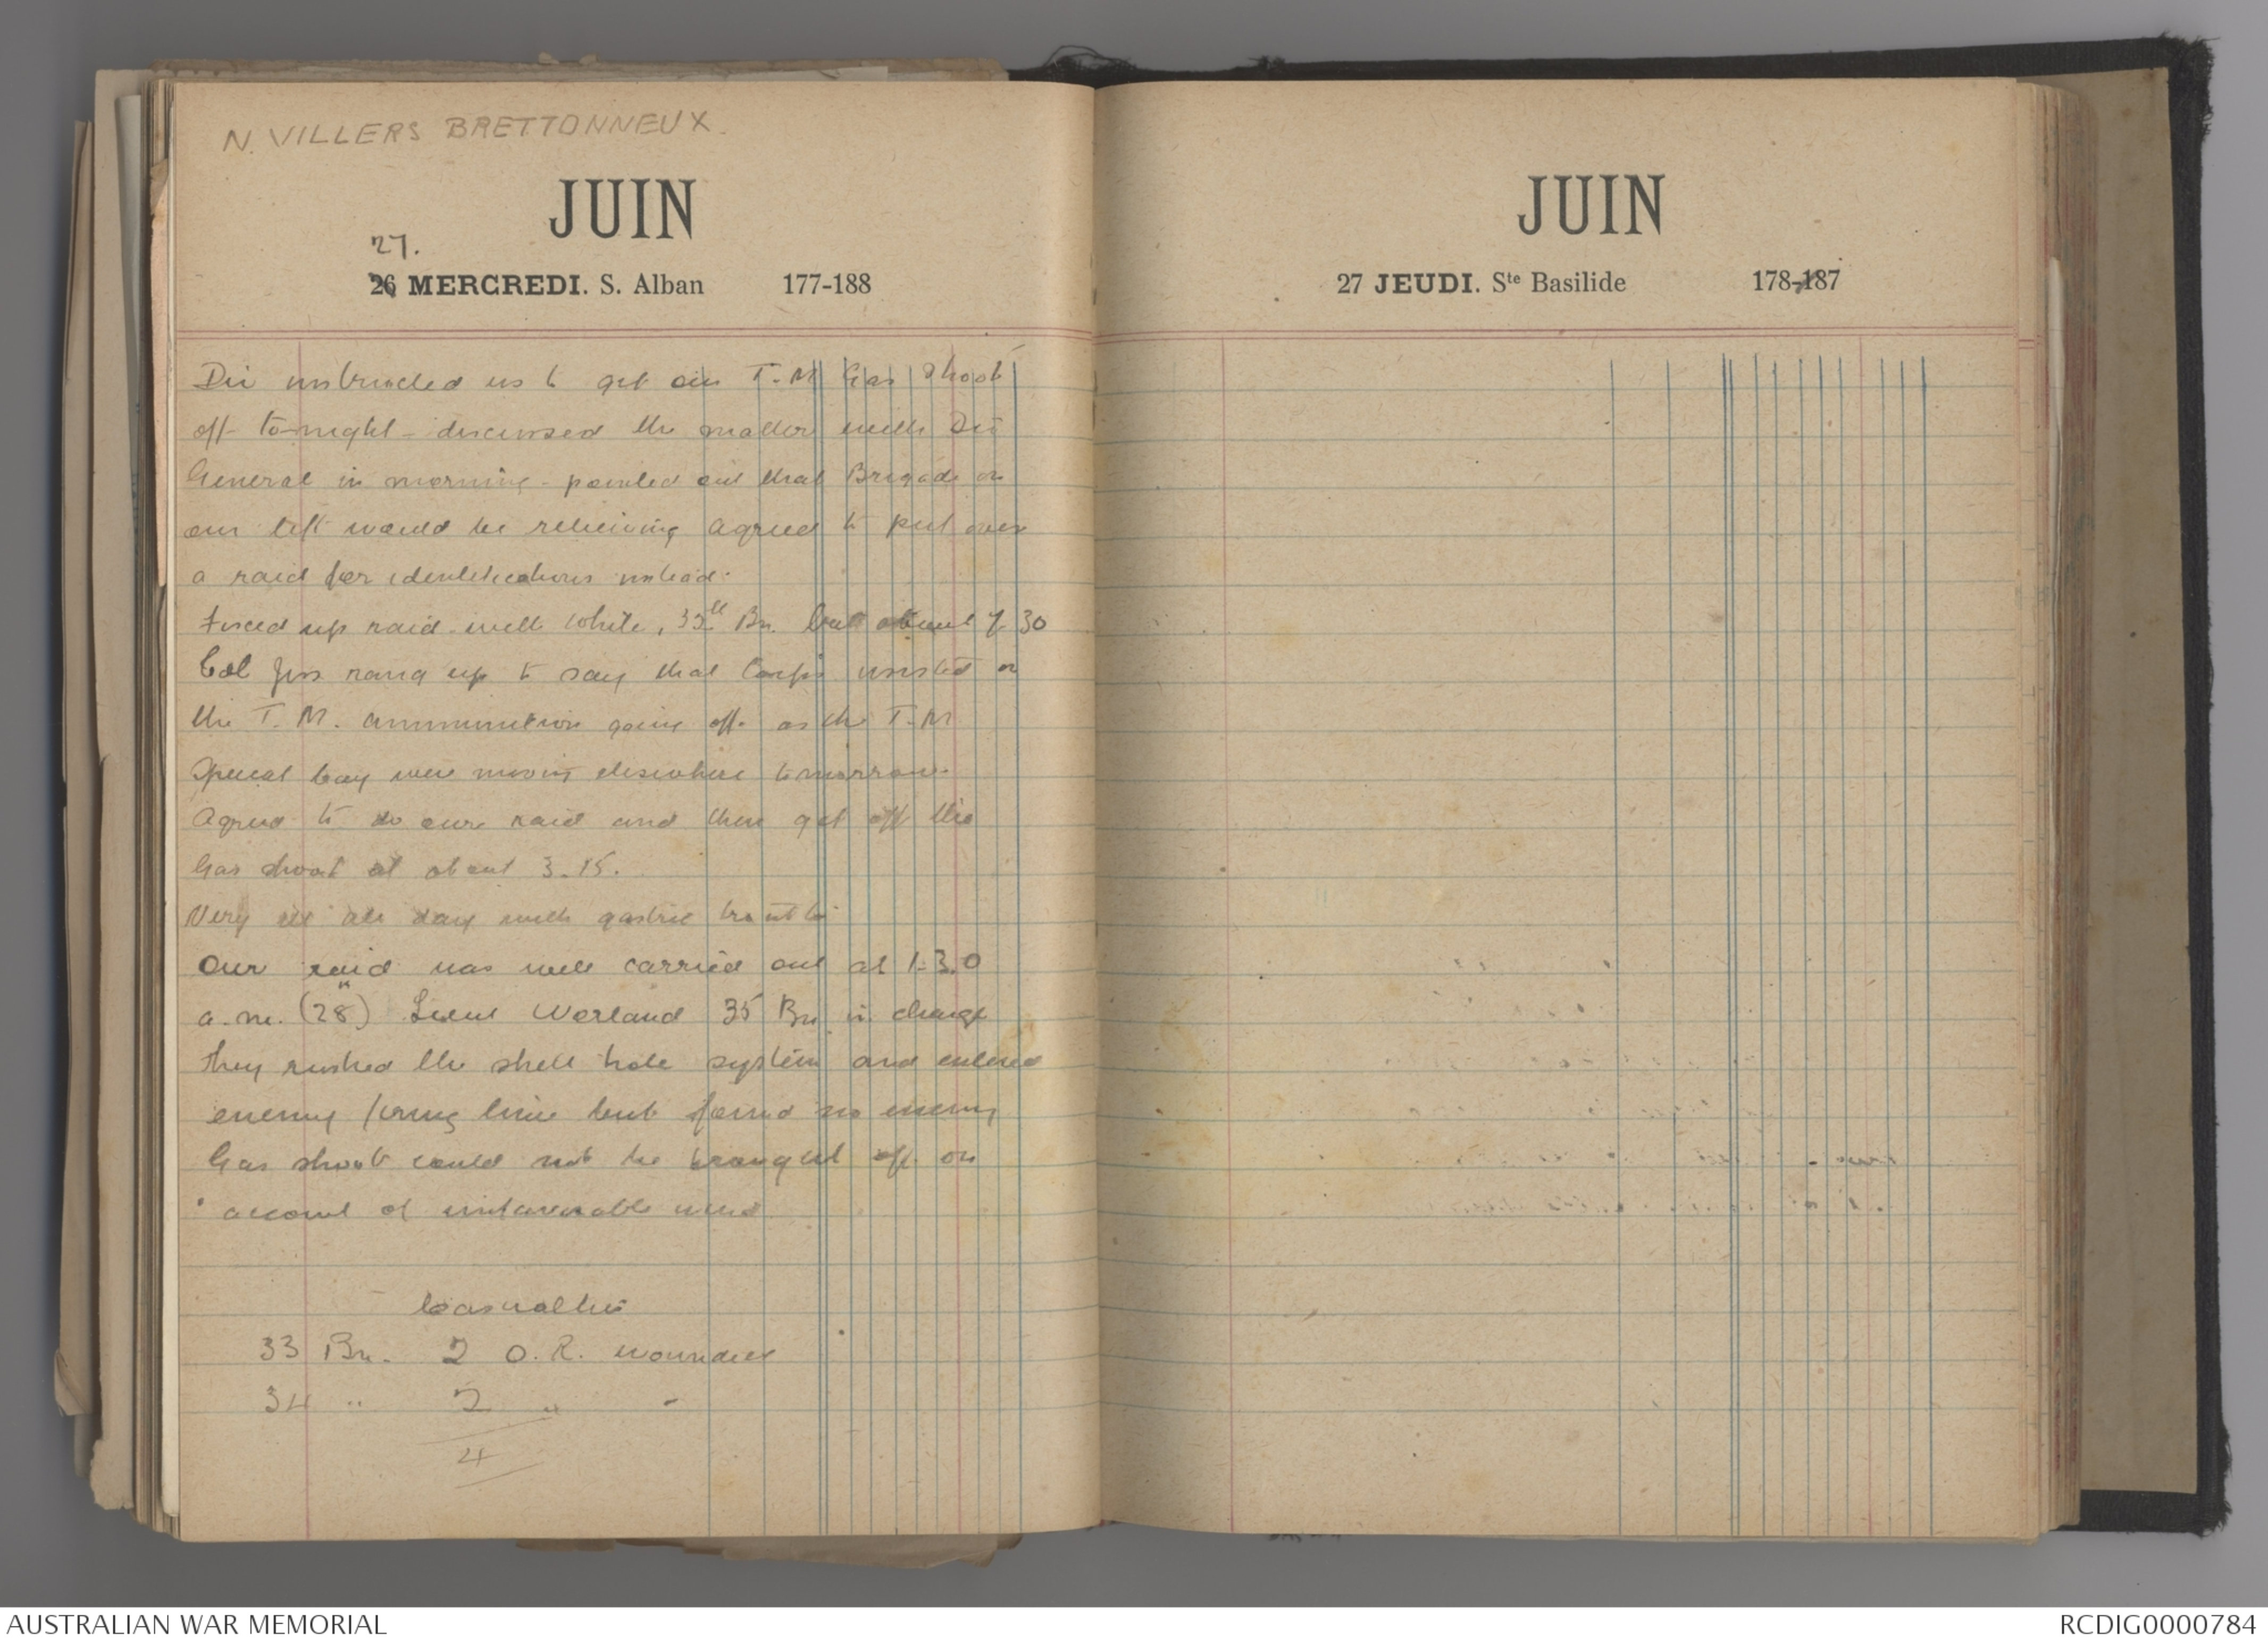 N. VILLERS BRETTONNEUX.
JUIN
27.
26 MERCREDI. S. Alban 177-188
Div instructed us to get our T.M Gas Shoot
off to-night - discussed the matter with Div
General in morning - pointed out that Brigade on
our left would be relieving agreed to put over
a raid for identifications instead.
Fixed up raid with White, 35th Bn. but about 7 30
Col Jess rang up to say that Corps insisted on
the T.M. ammunition going off. as the T.M
Special Coy were moving elsewhere tomorrow.
Agreed to do our raid and then get off the
Gas shoot at about 3.15.
Very ill all day with gastric trouble
Our raid was well carried out at 1.30
a.m. (28th) Lieut Worland 35 Bn in charge
they rushed the shell hole system and entered
enemy firing line but found no enemy
Gas shoot could not be brought off on
account of unfavourable wind
Casualties
33 Bn. 2 O.R. wounded
34 " 2 " "
4
JUIN
27 JEUDI. Ste Basilide 178-187
AUSTRALIAN WAR MEMORIAL
RCDIG0000784